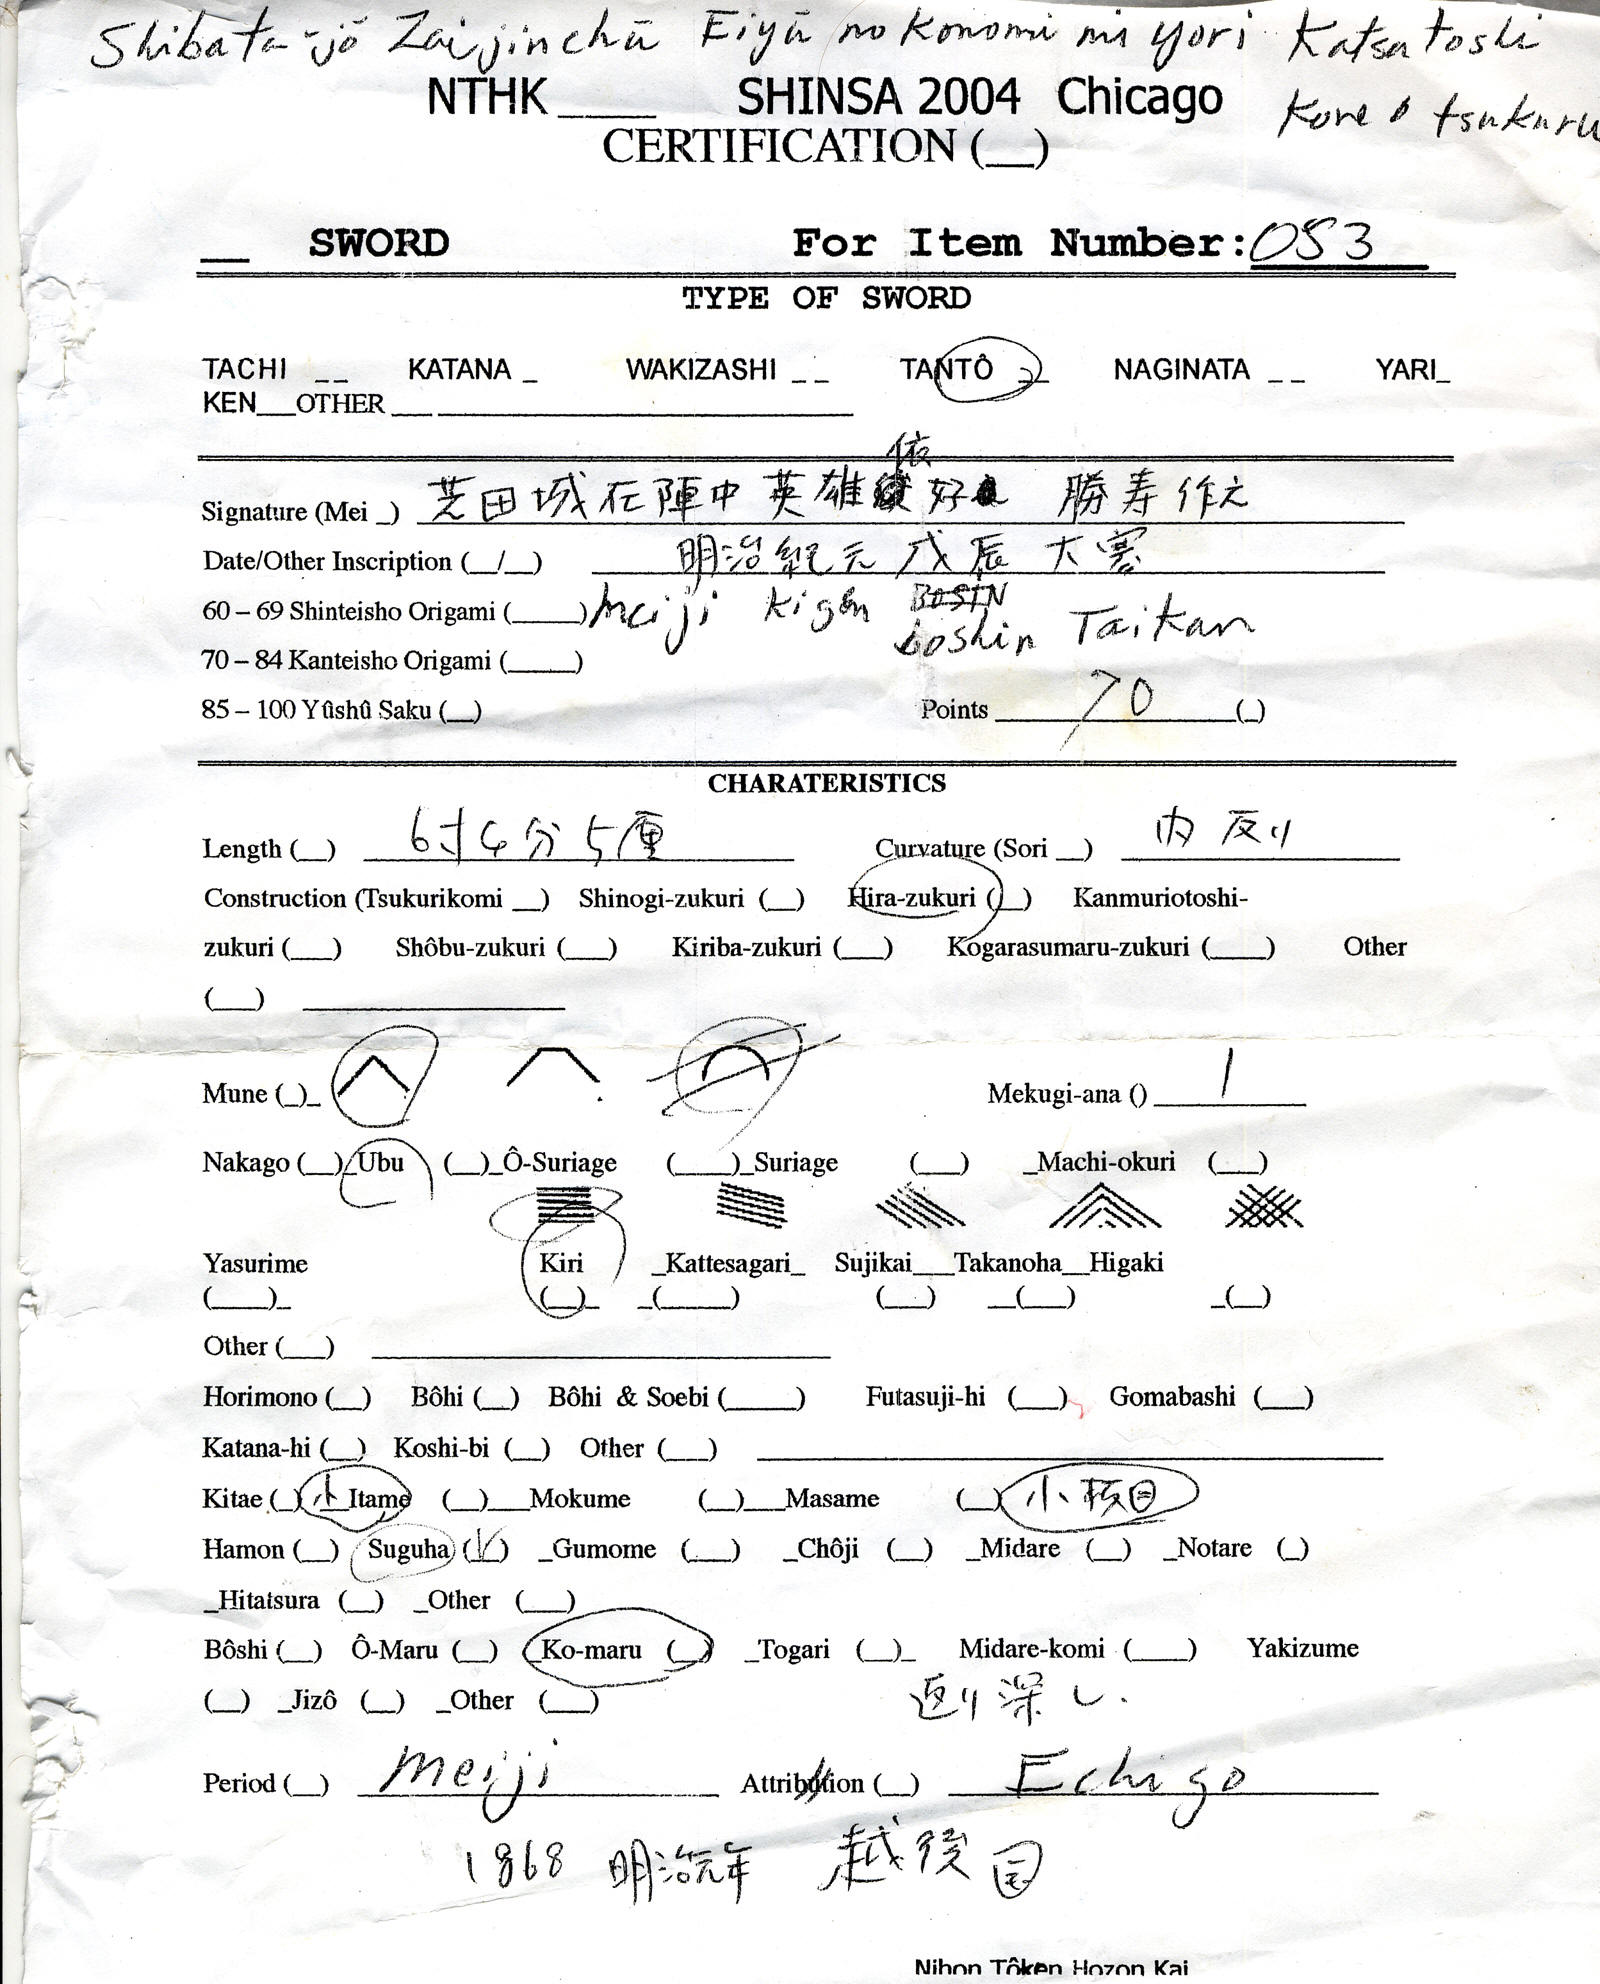 Shibata-jō Zaijinchū Eiyū no Konomi ni yori Katsutoshi
Kore o tsukuru
NTHK ____ SHINSA 2004 Chicago
CERTIFICATION (__)
__ SWORD For Item Number: 053
TYPE OF SWORD
TACHI _ _ KATANA _ WAKIZASHI _ _ TANTÔ _ _ NAGINATA _ _ YARI_
KEN___OTHER ___ ____________________
依
Signature (Mei _) 芝田城在陣中英雄好 勝寿作之
Date/Other Inscription (__/__) 明治紀元戊辰大寒
60 – 69 Shinteisho Origami (_____) Meiji Kigen BOSIN
boshin Taikan
70 – 84 Kanteisho Origami (_____)
85 – 100 Yûshû Saku (__) Points 70 (_)
CHARATERISTICS
Length (__) 6寸6分5厘 Curvature (Sori __) 内反り
Construction (Tsukurikomi __) Shinogi-zukuri (__) Hira-zukuri (__) Kanmuriotoshi-
zukuri (___) Shôbu-zukuri (___) Kiriba-zukuri (___) Kogarasumaru-zukuri (____) Other
(___) ____________________
Mune (_)_ Mekugi-ana () 1
Nakago (__)_Ubu (__)_Ô-Suriage (___)_Suriage (___) _Machi-okuri (___)
Yasurime Kiri _Kattesagari_ Sujikai___Takanoha__Higaki
(____)_ (__)_ _(____) (___) __(___) _(__)
Other (___) ____________________
Horimono (__) Bôhi (__) Bôhi & Soebi (_____) Futasuji-hi (___) Gomabashi (___)
Katana-hi (__) Koshi-bi (__) Other (___) ____________________
Kitae (_) 小 __Itame (__)___Mokume (__)___Masame (__) 小板目
Hamon (__) Suguha (__) _Gumome (___) _Chôji (__) _Midare (__) _Notare (_)
_Hitatsura (__) _Other (___)
Bôshi (__) Ô-Maru (__) _Ko-maru (__) _Togari (__)_ Midare-komi (____) Yakizume
(__) _Jizô (__) _Other (___) 返り深し.
Period (__) Meiji Attribution (__) Echigo
1868 明治元年 越後国
Nihon Tôken Hozon Kai